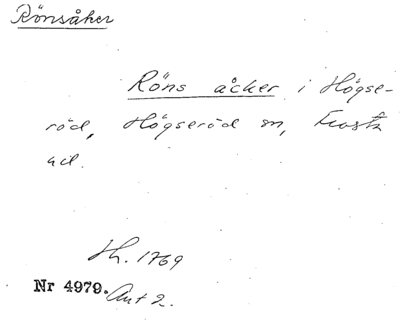 Rönsåker
Röns åcker i Högse-
röd, Högseröd sn, Frosta
hd.
Hh. 1769
Nr 4979. Akt 2.